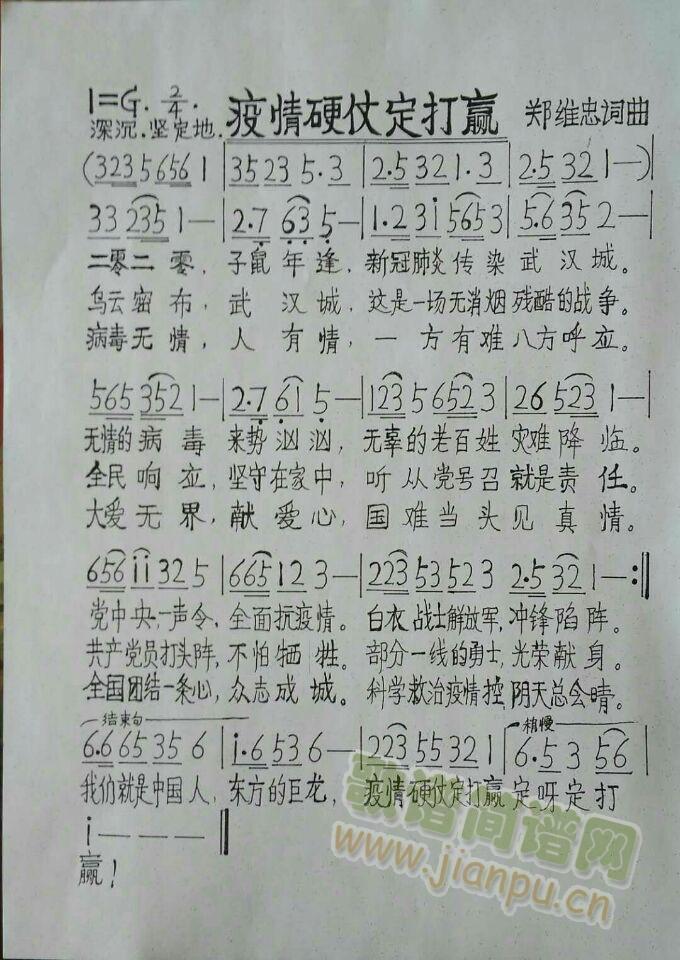 1=G. 2/4. 疫情硬仗定打赢 郑维忠词曲
深沉.坚定地.
(3235656 1 | 3523 5.3 | 2.532 1.3 | 2.532 1—)
33 235 1— | 2.7 63 5— | 1.23i 5653 | 5.635 2— |
二零二零，子鼠年逢，新冠肺炎传染武汉城。
乌云密布，武汉城，这是一场无消烟残酷的战争。
病毒无情，人有情，一方有难八方呼应。
565 352 1— | 2.7 61 5— | 123 56523 | 26 523 1— |
无情的病毒来势汹汹，无辜的老百姓灾难降临。
全民响应，坚守在家中，听从党号召就是责任。
大爱无界，献爱心，国难当头见真情。
656 ii 325 | 66512 3— | 223 53523 | 2.532 1— :||
党中央一声令，全面抗疫情。白衣战士解放军，冲锋陷阵。
共产党员打头阵，不怕牺牲。部分一线的勇士，光荣献身。
全国团结一条心，众志成城。科学救治疫情控阴天总会晴。
结束句 稍慢
6.665356 | i.653 6— | 223 55321 | 6.53 56 |
我们就是中国人，东方的巨龙，疫情硬仗定打赢定呀定打
i——— ||
赢！
歌谱简谱网
www.jianpu.cn